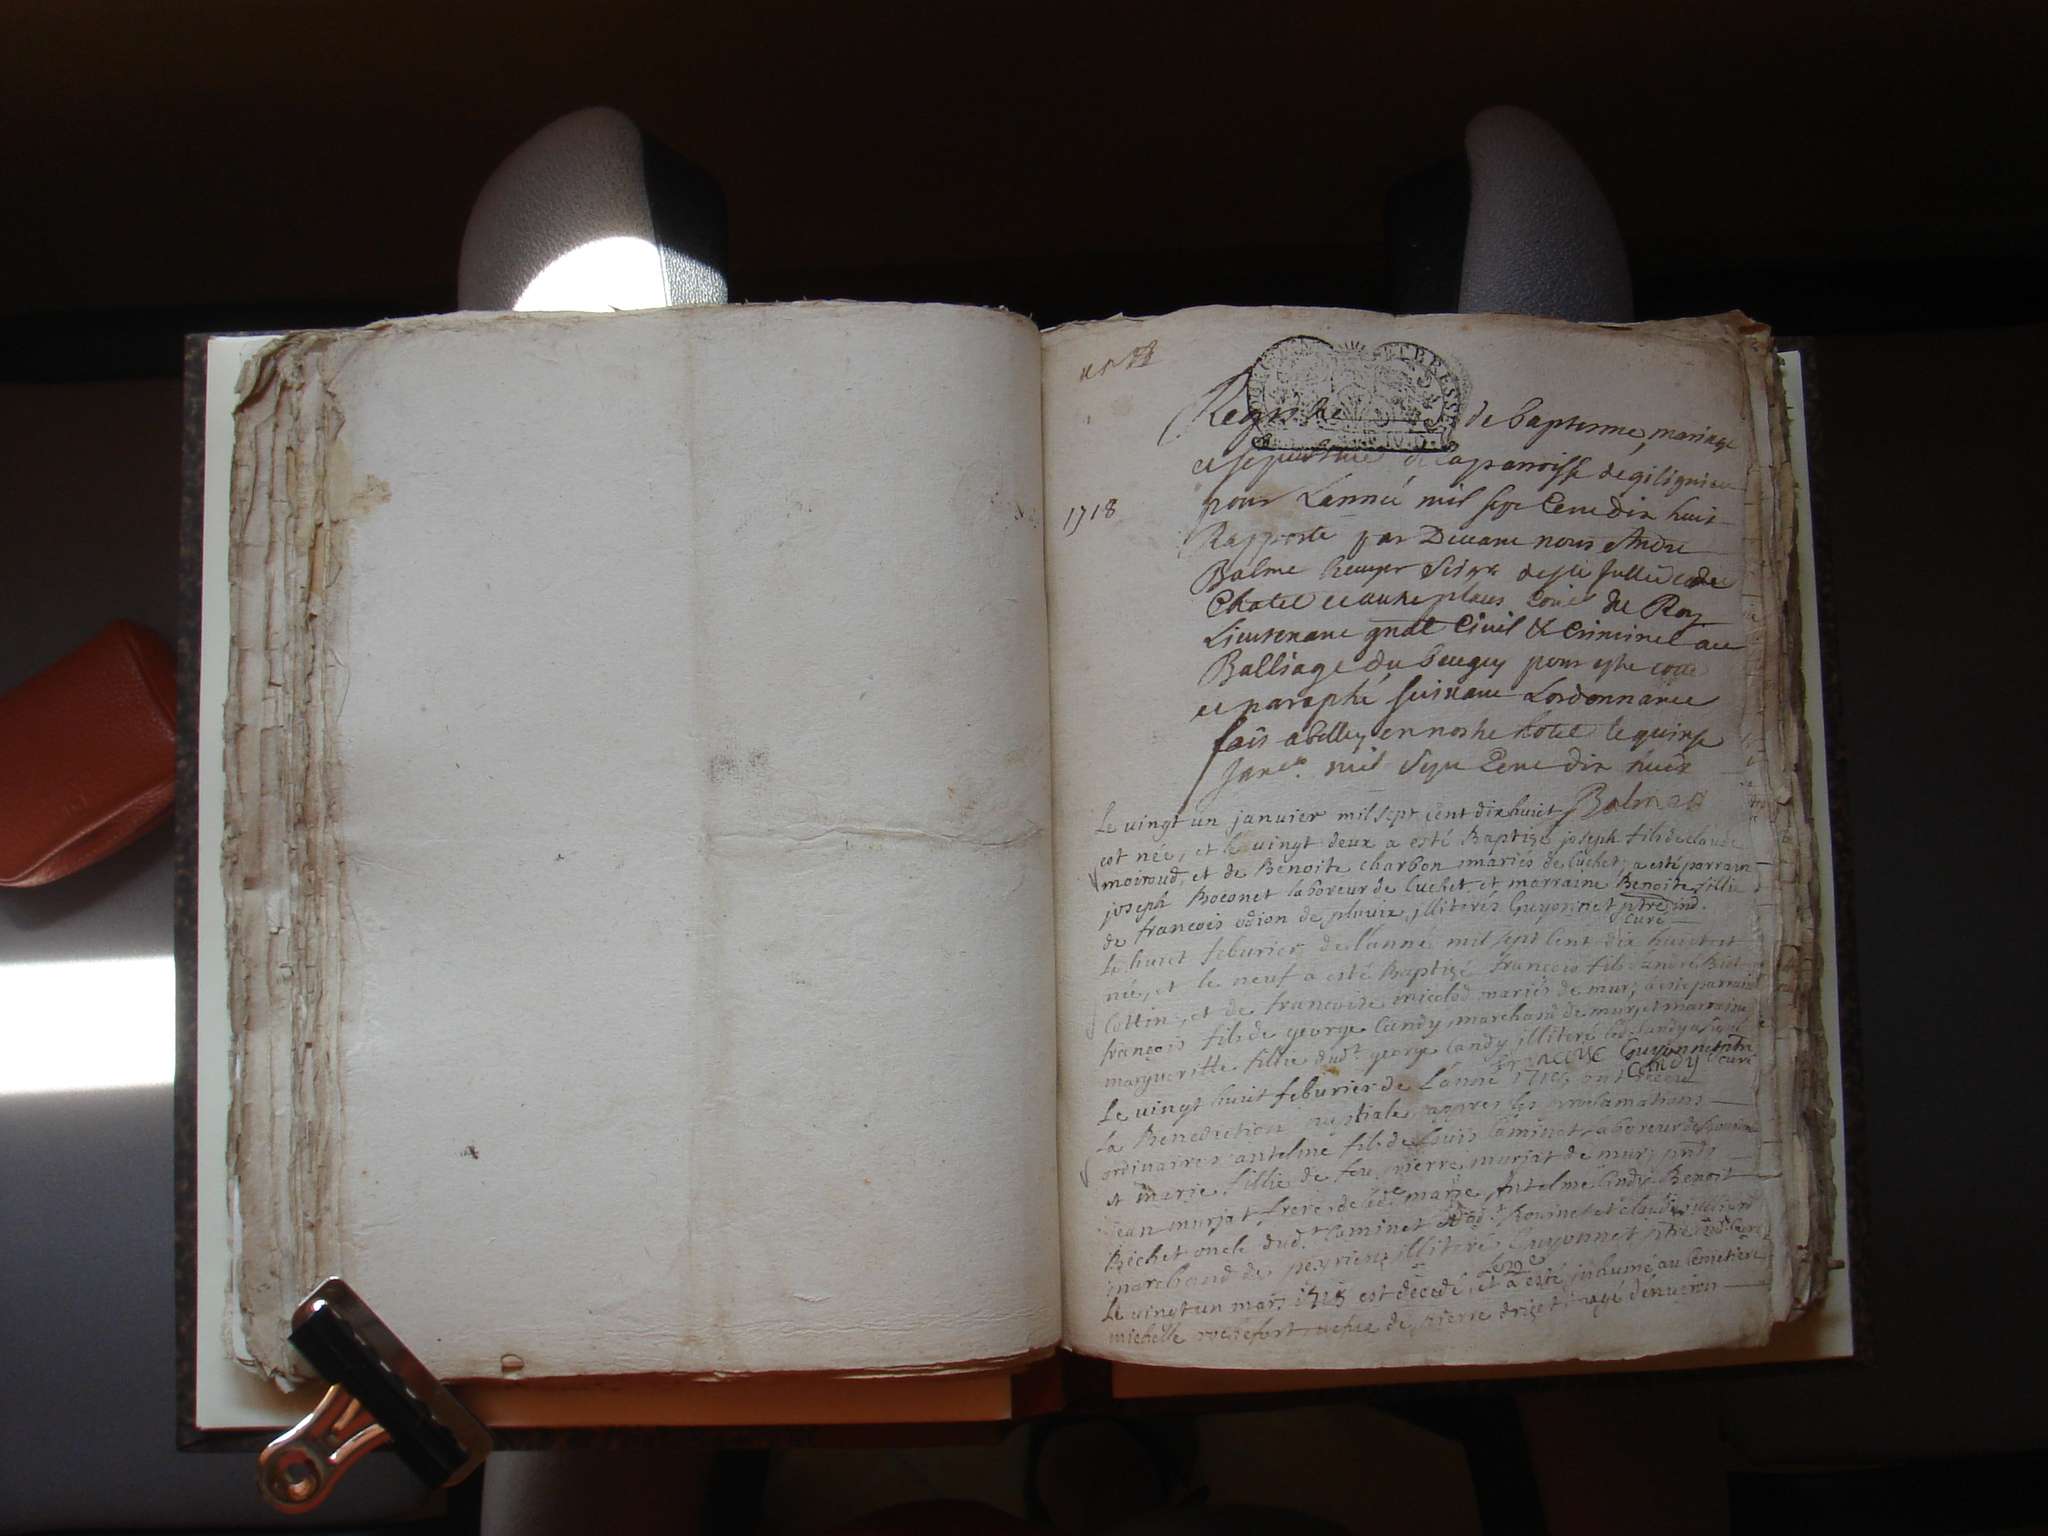 1718
Registre de baptesme, mariage
et sepulture de la parroisse de gilignieu
pour Lannée mil sept Cent dix huit
Rapporté par Devant nous Andre
Balme
Chatel et autre places Con.er du Roy
Lieutenant gnal Civil & Criminel au
Balliage du beugey pour estre cotté
et paraphé suivant Lordonnance
fait a belley en nostre hotel le quinze
Janer. mil Sept Cent dix huit
Balme
Le vingt un janvier mil sept cent dix huict
est née, et le vingt deux a esté Baptizé joseph fils de claude
moiroud, et de Benoite charbon mariés de luchet, a esté parrain
joseph Boconet laboreur de luchet et marraine Benoite fillie
de francois odion de plouix, jlliterés Guyonnet ptre ind.
curé
le huict feburier de l'anné mil sept cent dix huict est
née, et le neuf a esté Baptizé francois fils d'andré Biot
Cottin, et de francoise micolod mariés de murs, a esté parrain
françois fils de george Candy, marchand de murs, et marraine
margueritte fillie dud.t george Candy jlliteré led. Candy a signé
francois Guyonnet ptre
Candy curé
Le vingt huit feburier de L'anné 1718, ont receu
la Benediction nuptiale appres les proclamations
ordinaires antelme fils de Louis Caminet laboreur de
et marie fillie de feu pierre murjat de murs pnds
jean murjat frere de lad.e marie Antelme Candy Benoit
Bichet oncle dud.t Caminet et claude
marchand de peyrieu jlliteré Guyonnet ptre ind. Curé
Le vingt un mars 1718 est decedé, et a esté jnhumé au Cemetiere
michelle rochefort vefve de pierre drizet agé d'environ